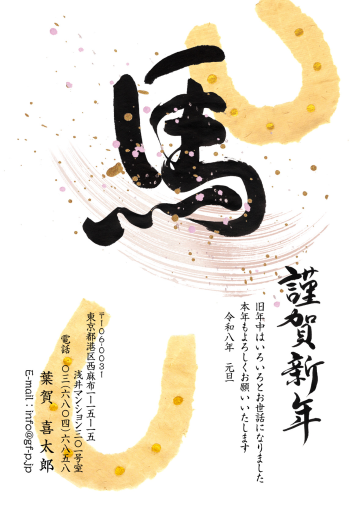 馬
謹賀新年
旧年中はいろいろとお世話になりました
本年もよろしくお願いいたします
令和八年 元旦
〒106-0031
東京都港区西麻布一-一五-一五
浅井マンション三〇一号室
電話 〇三(六八〇四)六八五八
葉賀 喜太郎
E-mail : info@gf-p.jp